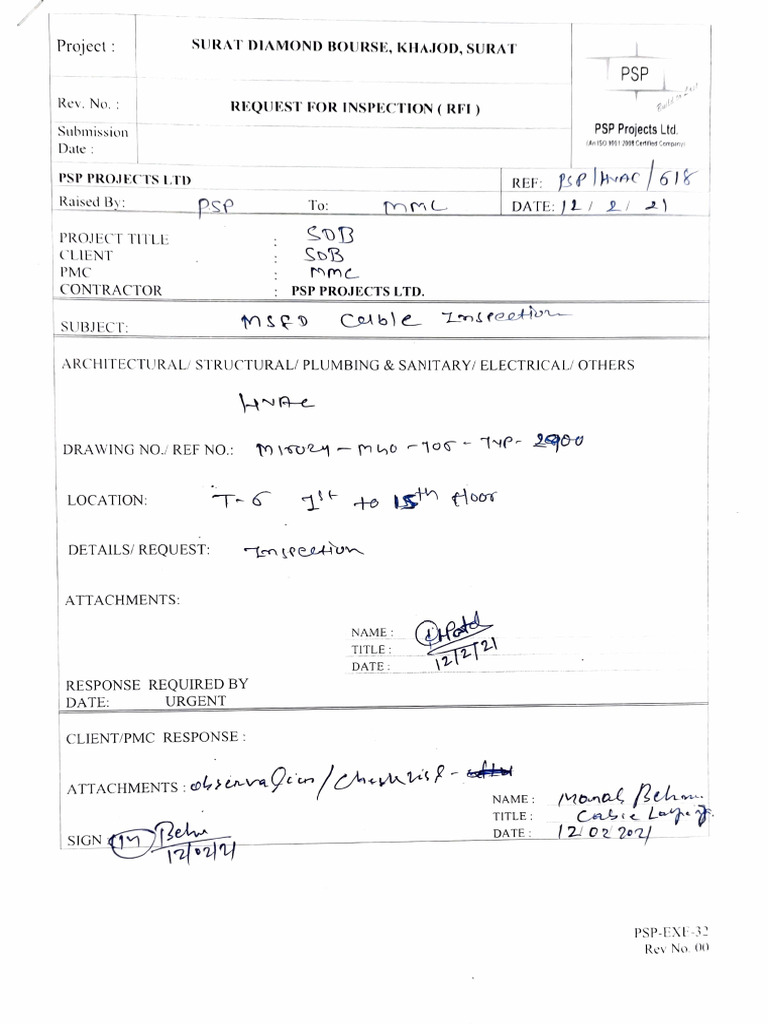 Project : SURAT DIAMOND BOURSE, KHAJOD, SURAT
PSP
Build to Last
PSP Projects Ltd.
(An ISO 9001:2008 Certified Company)
Rev. No. : REQUEST FOR INSPECTION ( RFI )
Submission
Date :
PSP PROJECTS LTD REF: PSP/HVAC/618
Raised By: PSP To: MMC DATE: 12/2/21
PROJECT TITLE : SDB
CLIENT : SDB
PMC : MMC
CONTRACTOR : PSP PROJECTS LTD.
SUBJECT: MSFD Cable Inspection
ARCHITECTURAL/ STRUCTURAL/ PLUMBING & SANITARY/ ELECTRICAL/ OTHERS
HVAC
DRAWING NO./ REF NO.: TYP-
LOCATION: T-6 1st to 15th floor
DETAILS/ REQUEST: Inspection
ATTACHMENTS:
NAME :
TITLE :
DATE : 12/2/21
RESPONSE REQUIRED BY
DATE: URGENT
CLIENT/PMC RESPONSE :
ATTACHMENTS : observation/checklist-
NAME :
TITLE : Cable
DATE : 12/02/2021
SIGN
12/02/21
PSP-EXE-32
Rev No. 00